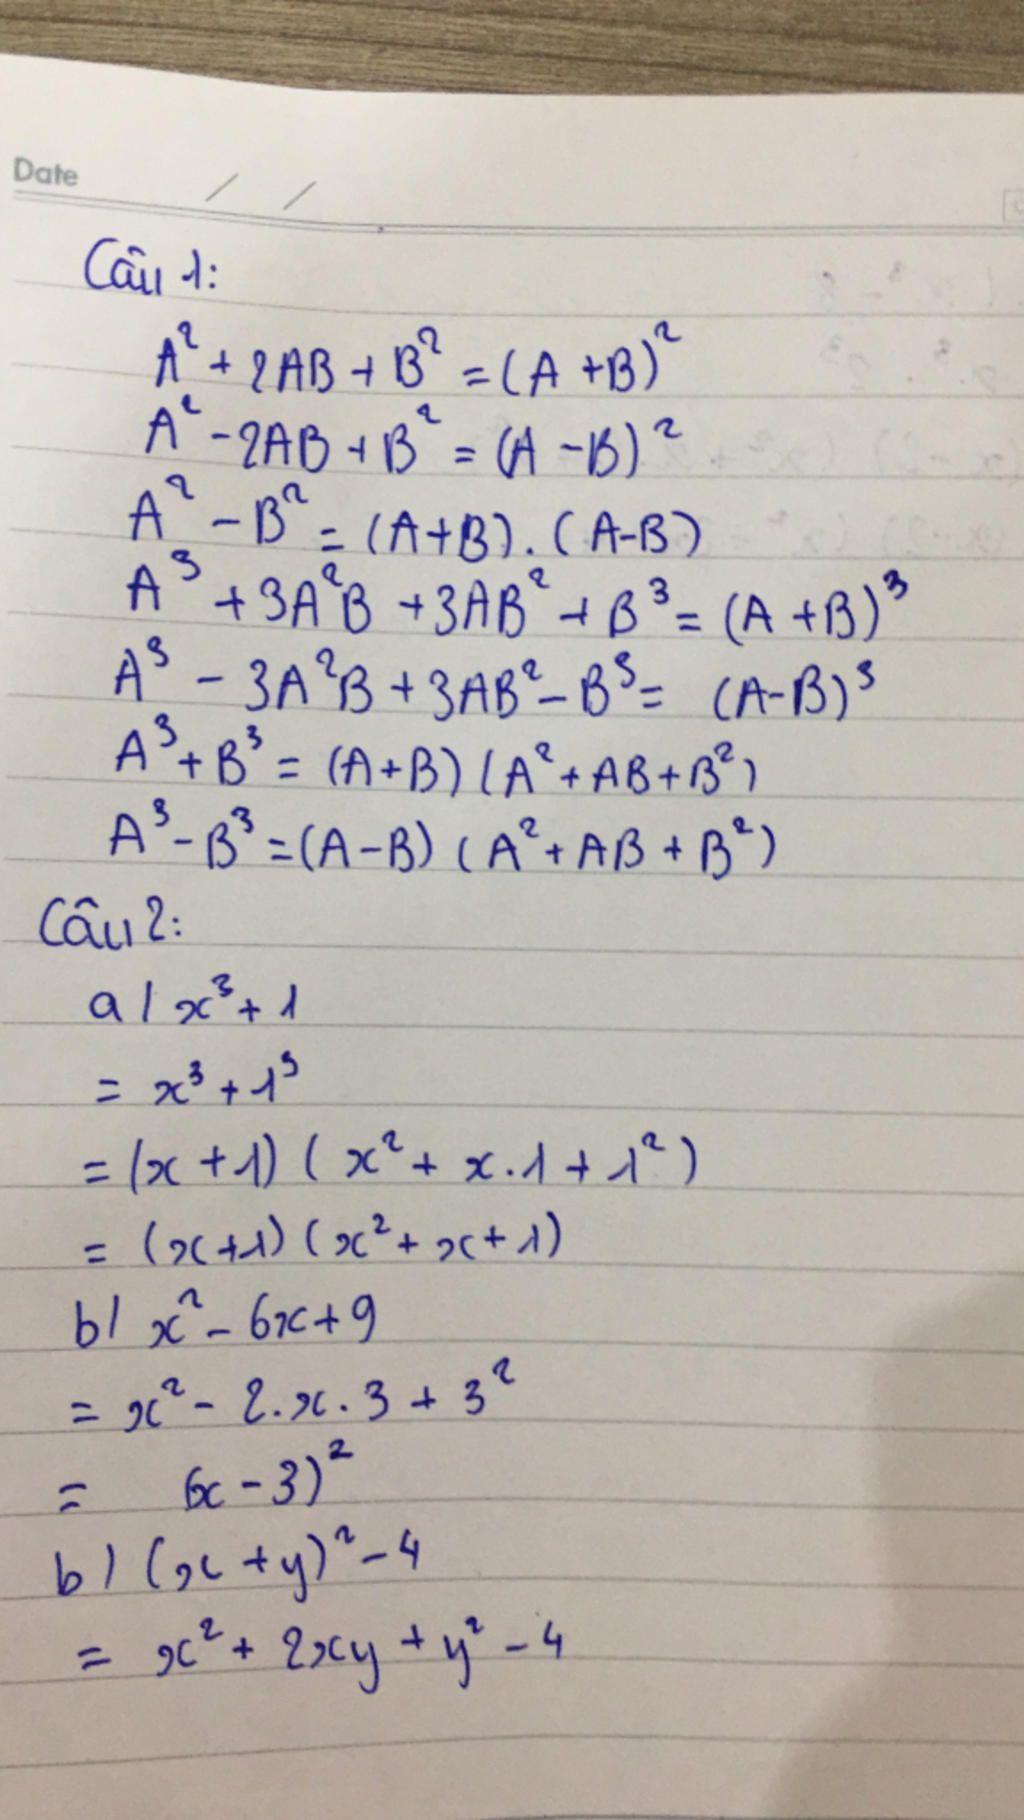 Date / /
Câu 1:
A² + 2AB + B² = (A + B)²
A² - 2AB + B² = (A - B)²
A² - B² = (A+B).(A-B)
A³ + 3A²B + 3AB² + B³ = (A + B)³
A³ - 3A²B + 3AB² - B³ = (A-B)³
A³ + B³ = (A+B) (A² + AB + B²)
A³ - B³ = (A-B) (A² + AB + B²)
Câu 2:
a/ x³ + 1
= x³ + 1³
= (x + 1) ( x² + x.1 + 1² )
= (x+1) (x² + x + 1)
b/ x² - 6x + 9
= x² - 2.x.3 + 3²
= (x - 3)²
b) (x + y)² - 4
= x² + 2xy + y² - 4